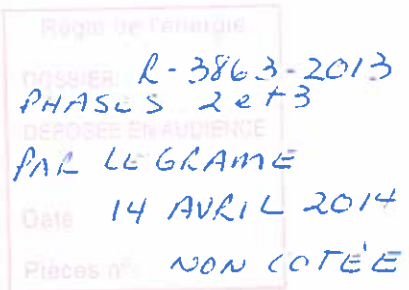 Régie de l'énergie
DOSSIER: R-3863-2013
PHASES 2 et 3
DÉPOSÉE EN AUDIENCE
PAR LE GRAME
Date 14 AVRIL 2014
Pièces n°: NON COTÉE